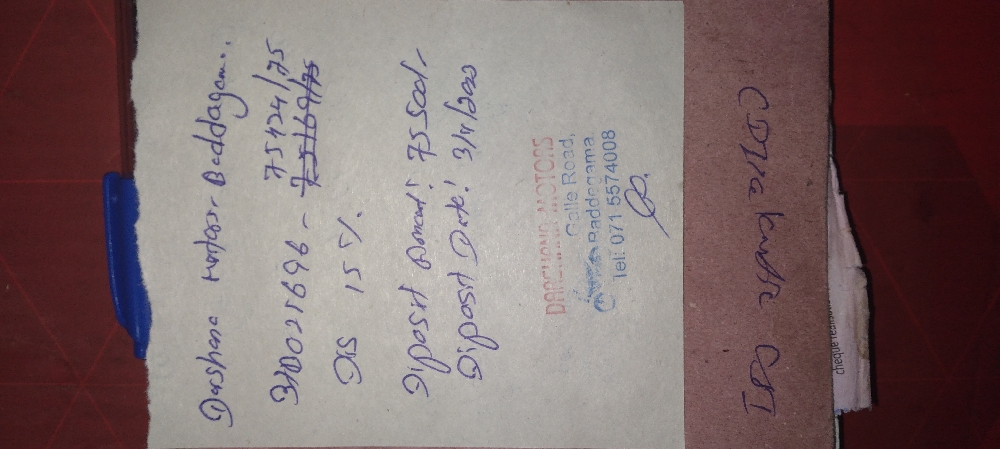 Darshana Motors - Baddagam..
75424/75
021696 - 75169/75
Dis 15%
Diposit Amount: 75500/-
Diposit Date: 3/4/2023
DARSHANA MOTORS
Galle Road,
Baddegama.
Tel: 071 5574008
cheque realis